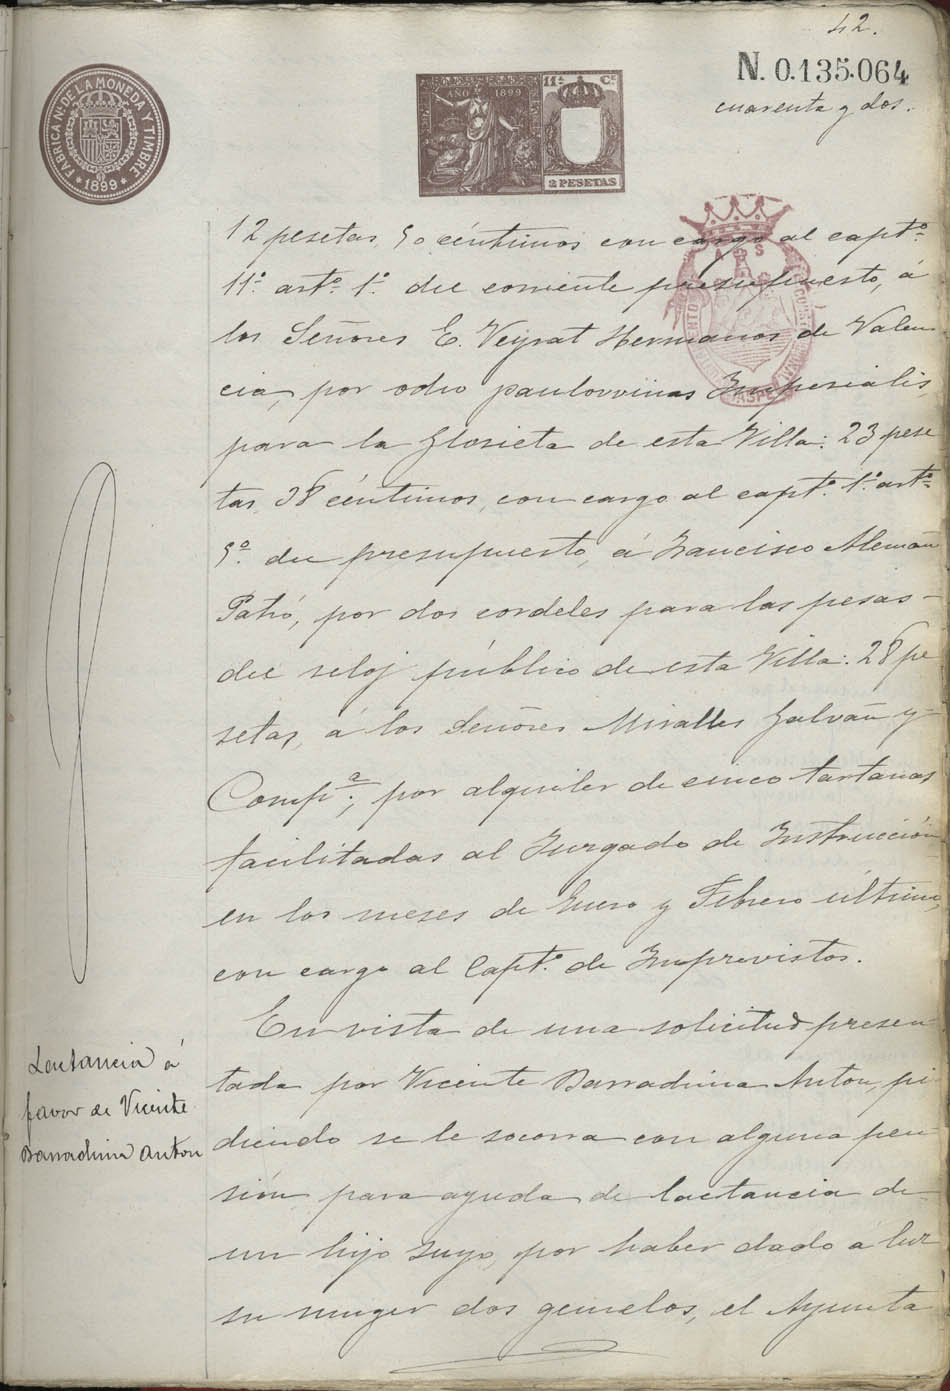 42.
N. 0.135.064
cuarenta y dos.
FÁBRICA Nl. DE LA MONEDA Y TIMBRE
1899
AÑO 1899
11ª Cª
2 PESETAS
12 pesetas, 50 céntimos con cargo al capt.º
11.º art.º 1.º del corriente presupuesto, á
los Señores E. Veyrat Hermanos de Valen
cia, por ocho paulovvinas Imperialis,
para la Glorieta de esta Villa: 23 pese
tas, 38 céntimos, con cargo al capt.º 1.º art.º
5.º del presupuesto, á Francisco Alemañ
Patró, por dos cordeles para las pesas
del reloj público de esta Villa: 28 pe
setas, á los Señores Miralles Galvañ y
Comp.ª, por alquiler de cinco tartanas
facilitadas al Juzgado de Instrucción
en los meses de Enero y Febrero último,
con cargo al Capt.º de Imprevistos.
Lactancia á
favor de Vicente
Barradina Anton
En vista de una solicitud presen
tada por Vicente Barradina Anton, pi
diendo se le socorra con alguna pen
sión para ayuda de lactancia de
un hijo suyo, por haber dado á luz
su muger dos gemelos, el Ayunta